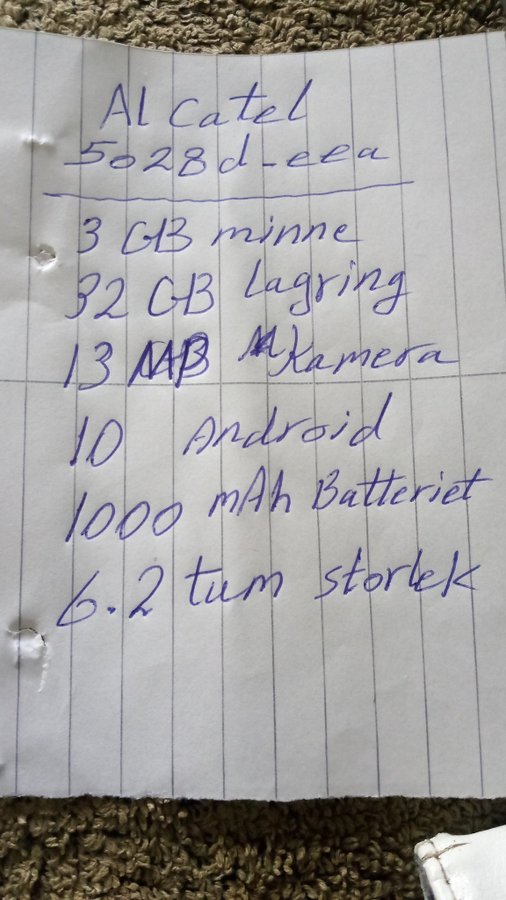 Alcatel
5028d-eea
3 GB minne
32 GB lagring
13 MB Kamera
10 Android
1000 mAh Batteriet
6.2 tum storlek